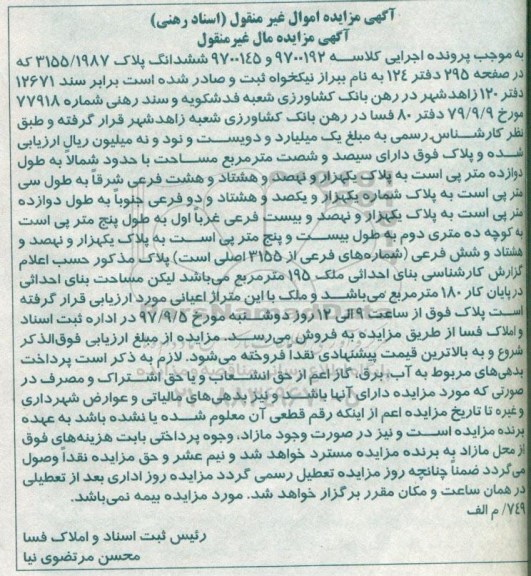 آگهی مزایده اموال غیر منقول (اسناد رهنی)
آگهی مزایده مال غیرمنقول
به موجب پرونده اجرایی کلاسه ۹۷۰۰۱۹۲ و ۹۷۰۰۱۴۵ ششدانگ پلاک ۳۱۵۵/۱۹۸۷ که
در صفحه ۲۹۵ دفتر ۱۲۴ به نام ببراز نیکخواه ثبت و صادر شده است برابر سند ۱۲۶۷۱
دفتر ۱۲۰ زاهدشهر در رهن بانک کشاورزی شعبه فدشکویه و سند رهنی شماره ۷۷۹۱۸
مورخ ۷۹/۹/۹ دفتر ۸۰ فسا در رهن بانک کشاورزی شعبه زاهدشهر قرار گرفته و طبق
نظر کارشناس رسمی به مبلغ یک میلیارد و دویست و نود و نه میلیون ریال ارزیابی
شده و پلاک فوق دارای سیصد و شصت مترمربع مساحت با حدود شمالاً به طول
دوازده متر پی است به پلاک یکهزار و نهصد و هشتاد و هشت فرعی شرقاً به طول سی
متر پی است به پلاک شماره یکهزار و یکصد و هشتاد و دو فرعی جنوباً به طول دوازده
متر پی است به پلاک یکهزار و نهصد و بیست فرعی غرباً اول به طول پنج متر پی است
به کوچه ده متری دوم به طول بیست و پنج متر پی است به پلاک یکهزار و نهصد و
هشتاد و شش فرعی (شماره‌های فرعی از ۳۱۵۵ اصلی است) پلاک مذکور حسب اعلام
گزارش کارشناسی بنای احداثی ملک ۱۹۵ مترمربع می‌باشد لیکن مساحت بنای احداثی
در پایان کار ۱۸۰ مترمربع می‌باشد و ملک با این متراژ اعیانی مورد ارزیابی قرار گرفته
است پلاک فوق از ساعت ۹ الی ۱۲ روز دوشنبه مورخ ۹۷/۹/۵ در اداره ثبت اسناد
و املاک فسا از طریق مزایده به فروش می‌رسد. مزایده از مبلغ ارزیابی فوق‌الذکر
شروع و به بالاترین قیمت پیشنهادی نقداً فروخته می‌شود. لازم به ذکر است پرداخت
بدهی‌های مربوط به آب، برق، گاز اعم از حق انشعاب و یا حق اشتراک و مصرف در
صورتی که مورد مزایده دارای آنها باشد و نیز بدهی‌های مالیاتی و عوارض شهرداری
و غیره تا تاریخ مزایده اعم از اینکه رقم قطعی آن معلوم شده یا نشده باشد به عهده
برنده مزایده است و نیز در صورت وجود مازاد، وجوه پرداختی بابت هزینه‌های فوق
از محل مازاد به برنده مزایده مسترد خواهد شد و نیم عشر و حق مزایده نقداً وصول
می‌گردد ضمناً چنانچه روز مزایده تعطیل رسمی گردد مزایده روز اداری بعد از تعطیلی
در همان ساعت و مکان مقرر برگزار خواهد شد. مورد مزایده بیمه نمی‌باشد.
۷۴۹/ م الف
رئیس ثبت اسناد و املاک فسا
محسن مرتضوی نیا